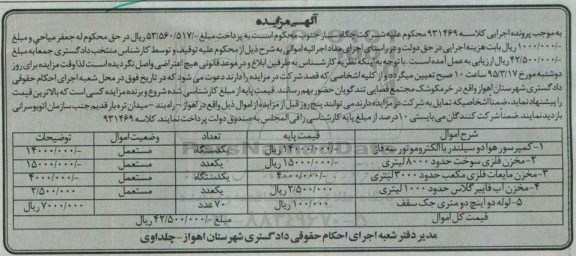 آگهی مزایده
به موجب پرونده اجرایی کلاسه ۹۳۱۴۶۹ محکوم علیه شرکت حکاکی آثار جنوب محکوم است به پرداخت مبلغ -/۵۳/۵۶۰/۵۱۷ ریال در حق محکوم له جعفر میاحی و مبلغ
-/۱۰۰۰/۰۰۰ ریال بابت هزینه اجرایی در حق دولت و در راستای اجرای مفاد اجرائیه اموالی به شرح ذیل از محکوم علیه توقیف و توسط کارشناس منتخب دادگستری جمعا به مبلغ
-/۴۲/۵۰۰/۰۰۰ ریال ارزیابی به عمل آمده است. با توجه به اینکه نظریه کارشناس به طرفین ابلاغ و در موعد قانونی هیچ اعتراضی واصل نگردیده است لذا وقت مزایده برای روز
دوشنبه مورخ ۹۵/۳/۱۷ ساعت ۱۰ صبح تعیین میگردد و از کلیه اشخاصی که قصد شرکت در مزایده را دارند دعوت می شود که در تاریخ فوق در محل شعبه اجرای احکام حقوقی
دادگستری شهرستان اهواز واقع در خرمکوشک مجتمع قضایی تندگویان حضور بهم رسانند. قیمت پایه از مبلغ کارشناسی شده شروع و برنده مزایده کسی است که بالاترین قیمت
را پیشنهاد نماید، ضمنا اشخاصیکه تمایل به شرکت در مزایده دارند می توانند پنج روز قبل از مزایده از اموال ذیل واقع در اهواز - راه بند - میدان تره بار قدیم جنب سازمان اتوبوسرانی
بازدید نمایند. ضمنا شرکت کنندگان می بایستی ۱۰ درصد از مبلغ پایه کارشناسی را فی المجلس به صندوق دولت پرداخت نمایند. کلاسه ۹۳۱۴۶۹
شرح اموال قیمت پایه تعداد وضعیت اموال توضیحات
۱- کمپرسور هوا دو سیلندر با الکتروموتور سه فاز -/۱۴۰۰۰/۰۰۰ ریال یکدستگاه مستعمل -/۱۴۰۰۰/۰۰۰
۲- مخزن فلزی سوخت حدود ۸۰۰۰ لیتری -/۱۵۰۰۰/۰۰۰ ریال یکعدد مستعمل -/۱۵۰۰۰/۰۰۰
۳- مخزن مایعات فلزی مکعب حدود ۳۰۰۰ لیتری -/۴۰۰۰/۰۰۰ ریال یکدستگاه مستعمل -/۴۰۰۰/۰۰۰
۴- مخزن آب فایبر گلاس حدود ۱۰۰۰ لیتری -/۲/۵۰۰/۰۰۰ ریال یکعدد مستعمل ۲/۵۰۰/۰۰۰
۵- لوله دو اینچ دو متری جک سقف -/۱۰۰/۰۰۰ ریال ۷۰ عدد -/۷۰۰۰/۰۰۰ ریال
قیمت کل اموال مبلغ -/۴۲/۵۰۰/۰۰۰ ریال
مدیر دفتر شعبه اجرای احکام حقوقی دادگستری شهرستان اهواز - چلداوی